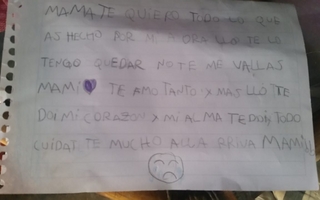 MAMA TE QUIERO TODO LO QUE
AS HECHO POR MI AORA LLO TE LO
TENGO QUEDAR NO TE ME VALLAS
MAMI TE AMO TANTO X MAS LLO TE
DOI MI CORAZON X MI ALMA TE DOI TODO
CUIDATE MUCHO ALLA ARIVA MAMI